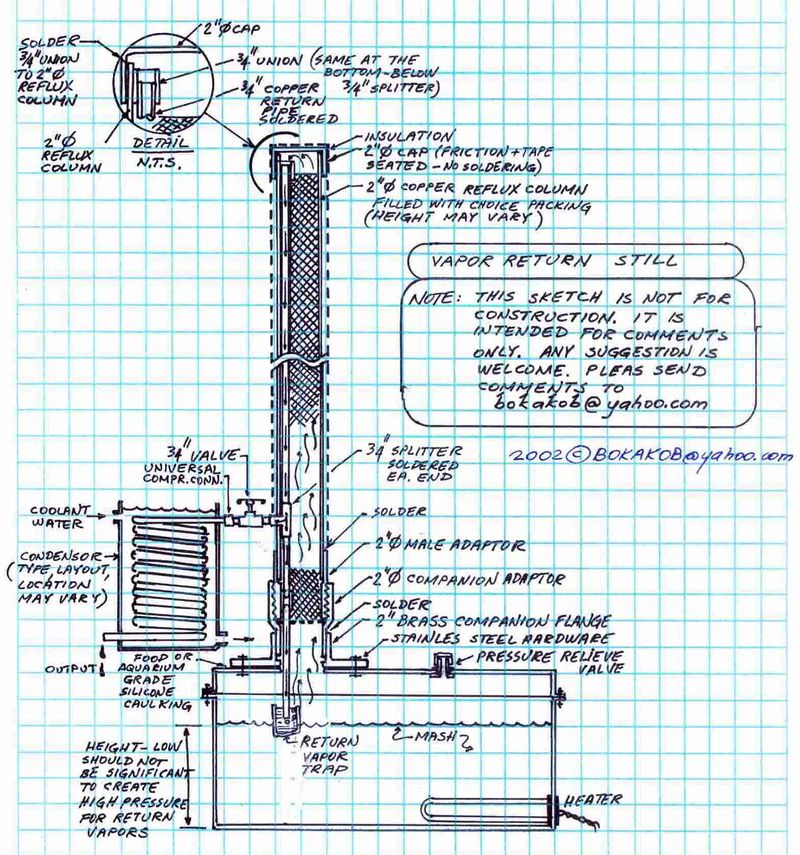 2"Ø CAP
SOLDER
3/4" UNION
TO 2"Ø
REFLUX
COLUMN
3/4" UNION (SAME AT THE
BOTTOM-BELOW
3/4" SPLITTER)
3/4" COPPER
RETURN
PIPE
SOLDERED
2"Ø
REFLUX
COLUMN
DETAIL
N.T.S.
INSULATION
2"Ø CAP (FRICTION + TAPE
SEATED - NO SOLDERING)
2"Ø COPPER REFLUX COLUMN
FILLED WITH CHOICE PACKING
(HEIGHT MAY VARY)
VAPOR RETURN STILL
NOTE: THIS SKETCH IS NOT FOR
CONSTRUCTION. IT IS
INTENDED FOR COMMENTS
ONLY. ANY SUGGESTION IS
WELCOME. PLEAS SEND
COMMENTS TO
bokakob@yahoo.com
2002 © BOKAKOB@yahoo.com
3/4" VALVE
UNIVERSAL
COMPR. CONN.
3/4" SPLITTER
SOLDERED
EA. END
COOLANT
WATER
SOLDER
2"Ø MALE ADAPTOR
CONDENSOR
(TYPE, LAYOUT,
LOCATION
MAY VARY)
2"Ø COMPANION ADAPTOR
SOLDER
2" BRASS COMPANION FLANGE
STAINLES STEEL HARDWARE
PRESSURE RELIEVE
VALVE
OUTPUT
FOOD OR
AQUARIUM
GRADE
SILICONE
CAULKING
RETURN
VAPOR
TRAP
MASH
HEIGHT- LOW
SHOULD NOT
BE SIGNIFICANT
TO CREATE
HIGH PRESSURE
FOR RETURN
VAPORS
HEATER